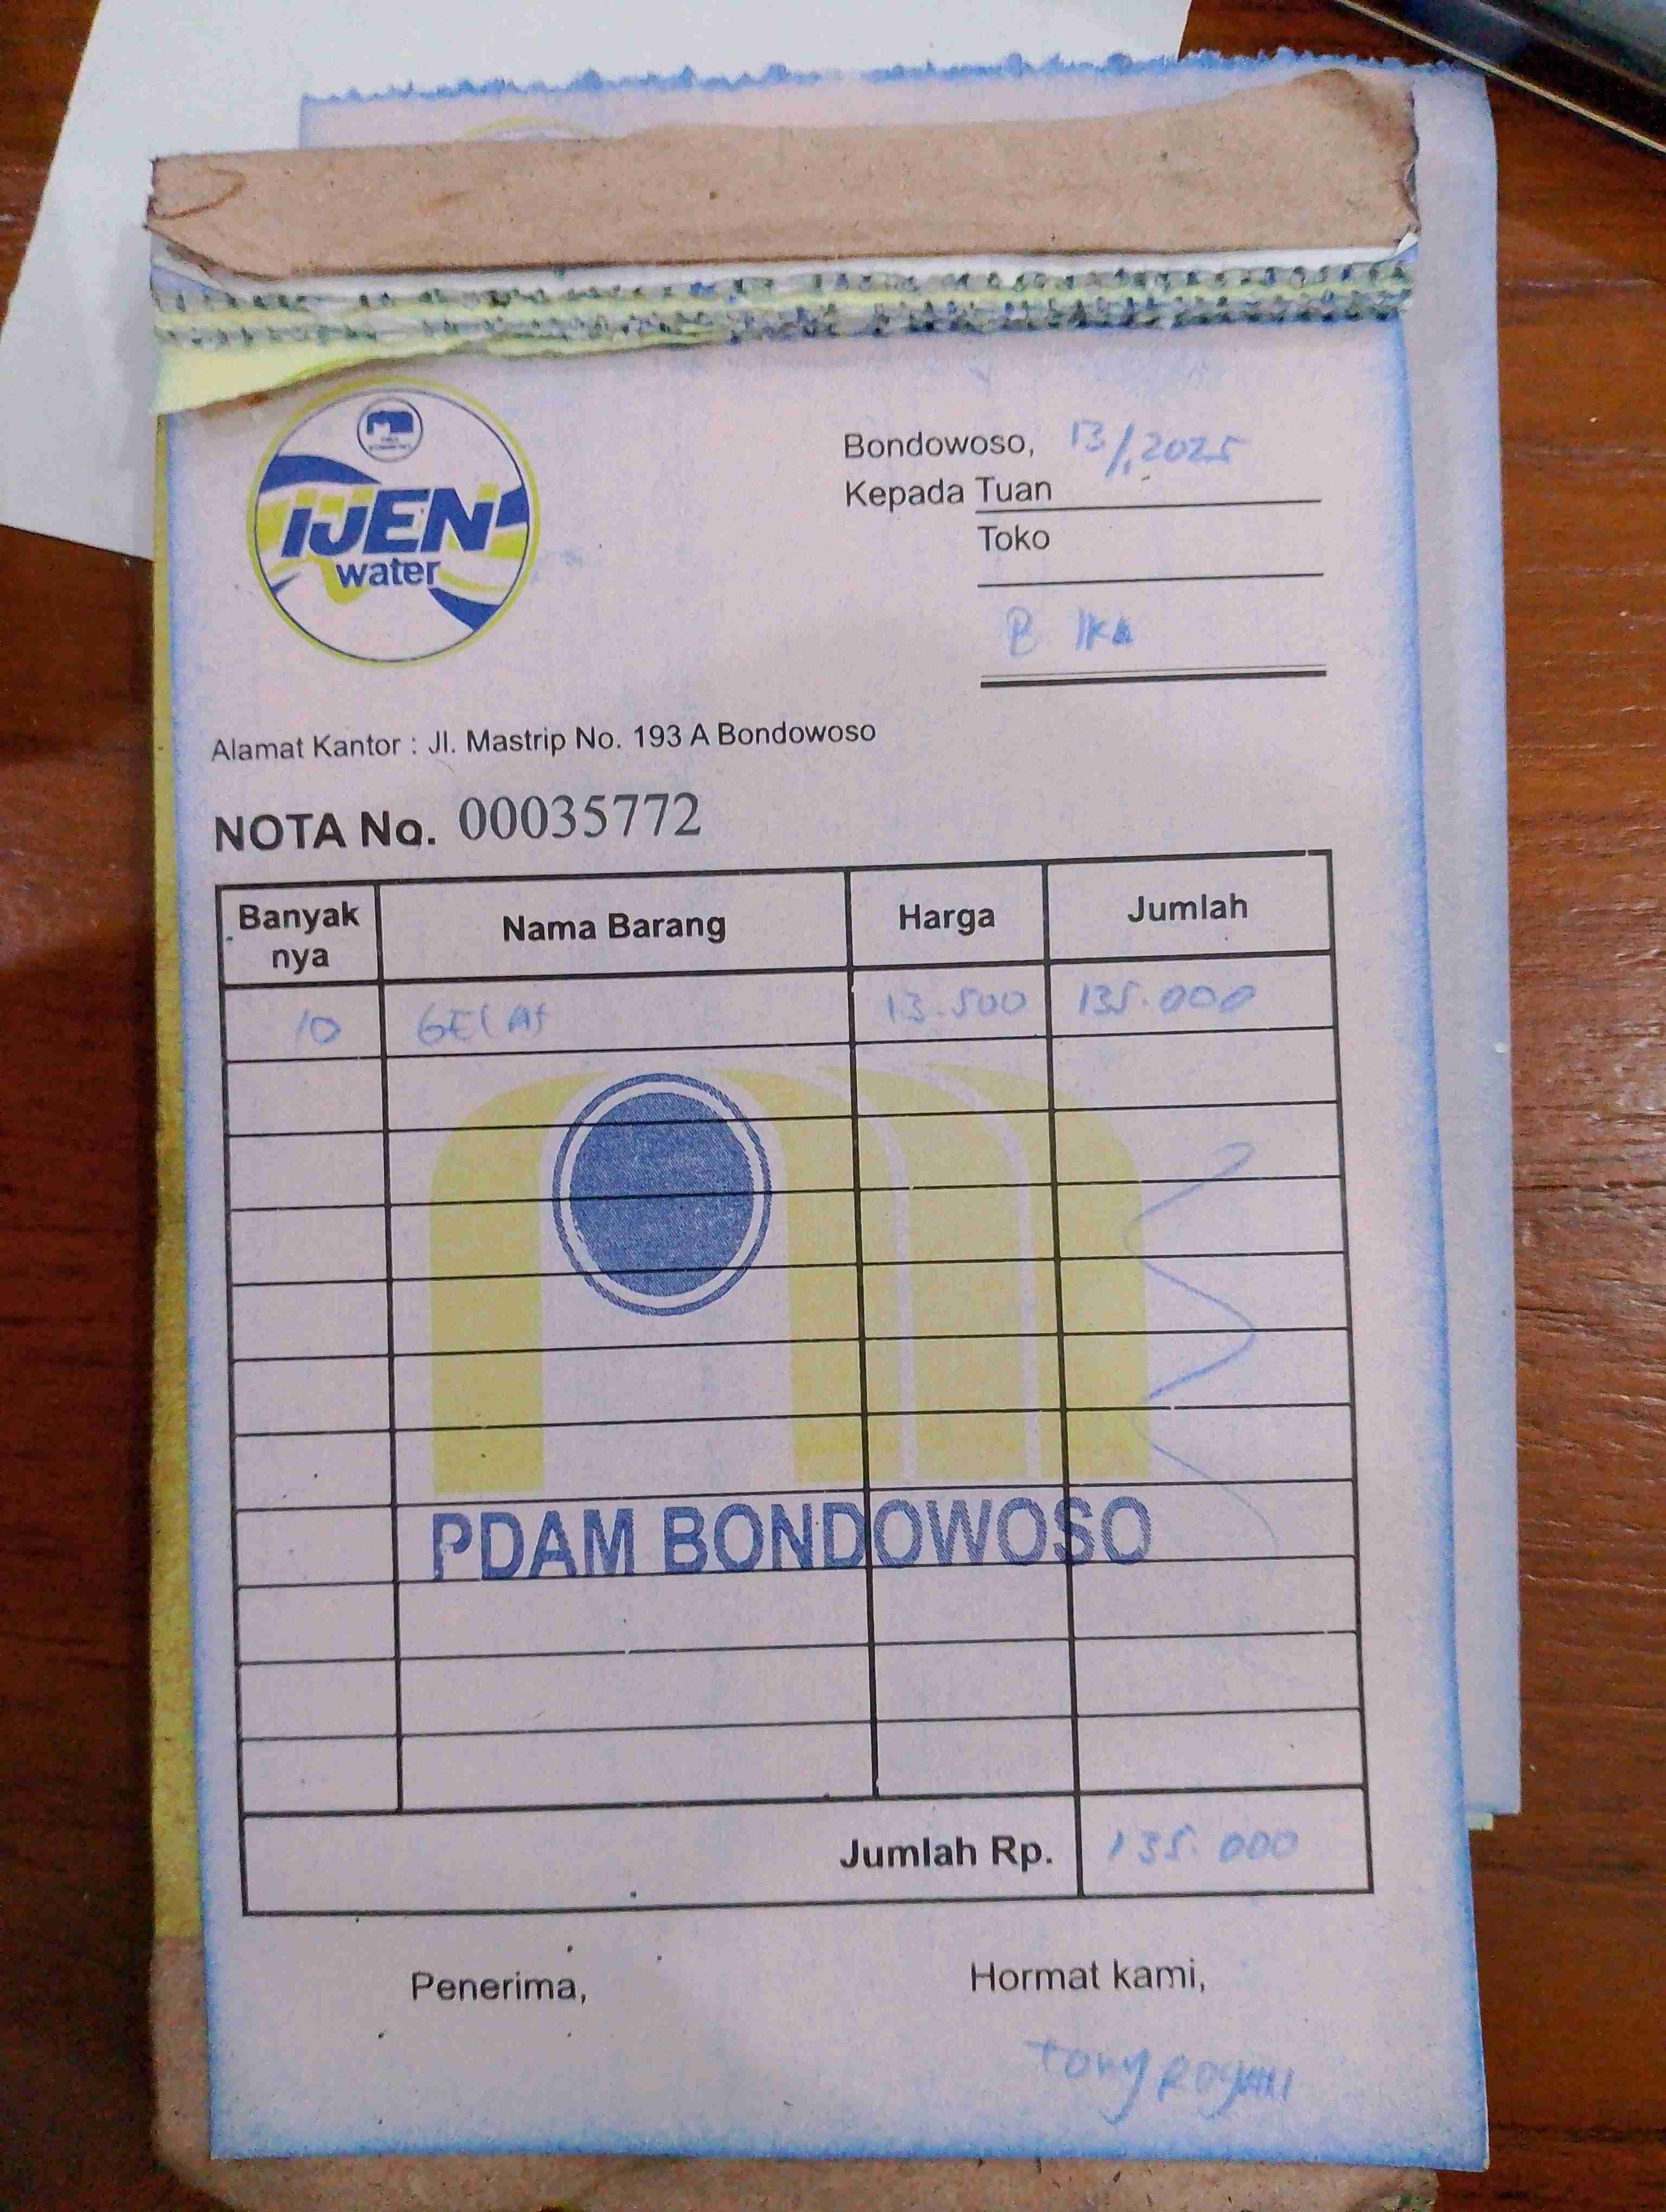 IJEN
water
Bondowoso, 13/1.2025
Kepada Tuan
Toko
B IKA
Alamat Kantor : Jl. Mastrip No. 193 A Bondowoso
NOTA No. 00035772
Banyak nya Nama Barang Harga Jumlah
10 GELAS 13.500 135.000
PDAM BONDOWOSO
Jumlah Rp. 135.000
Penerima, Hormat kami,
Tony